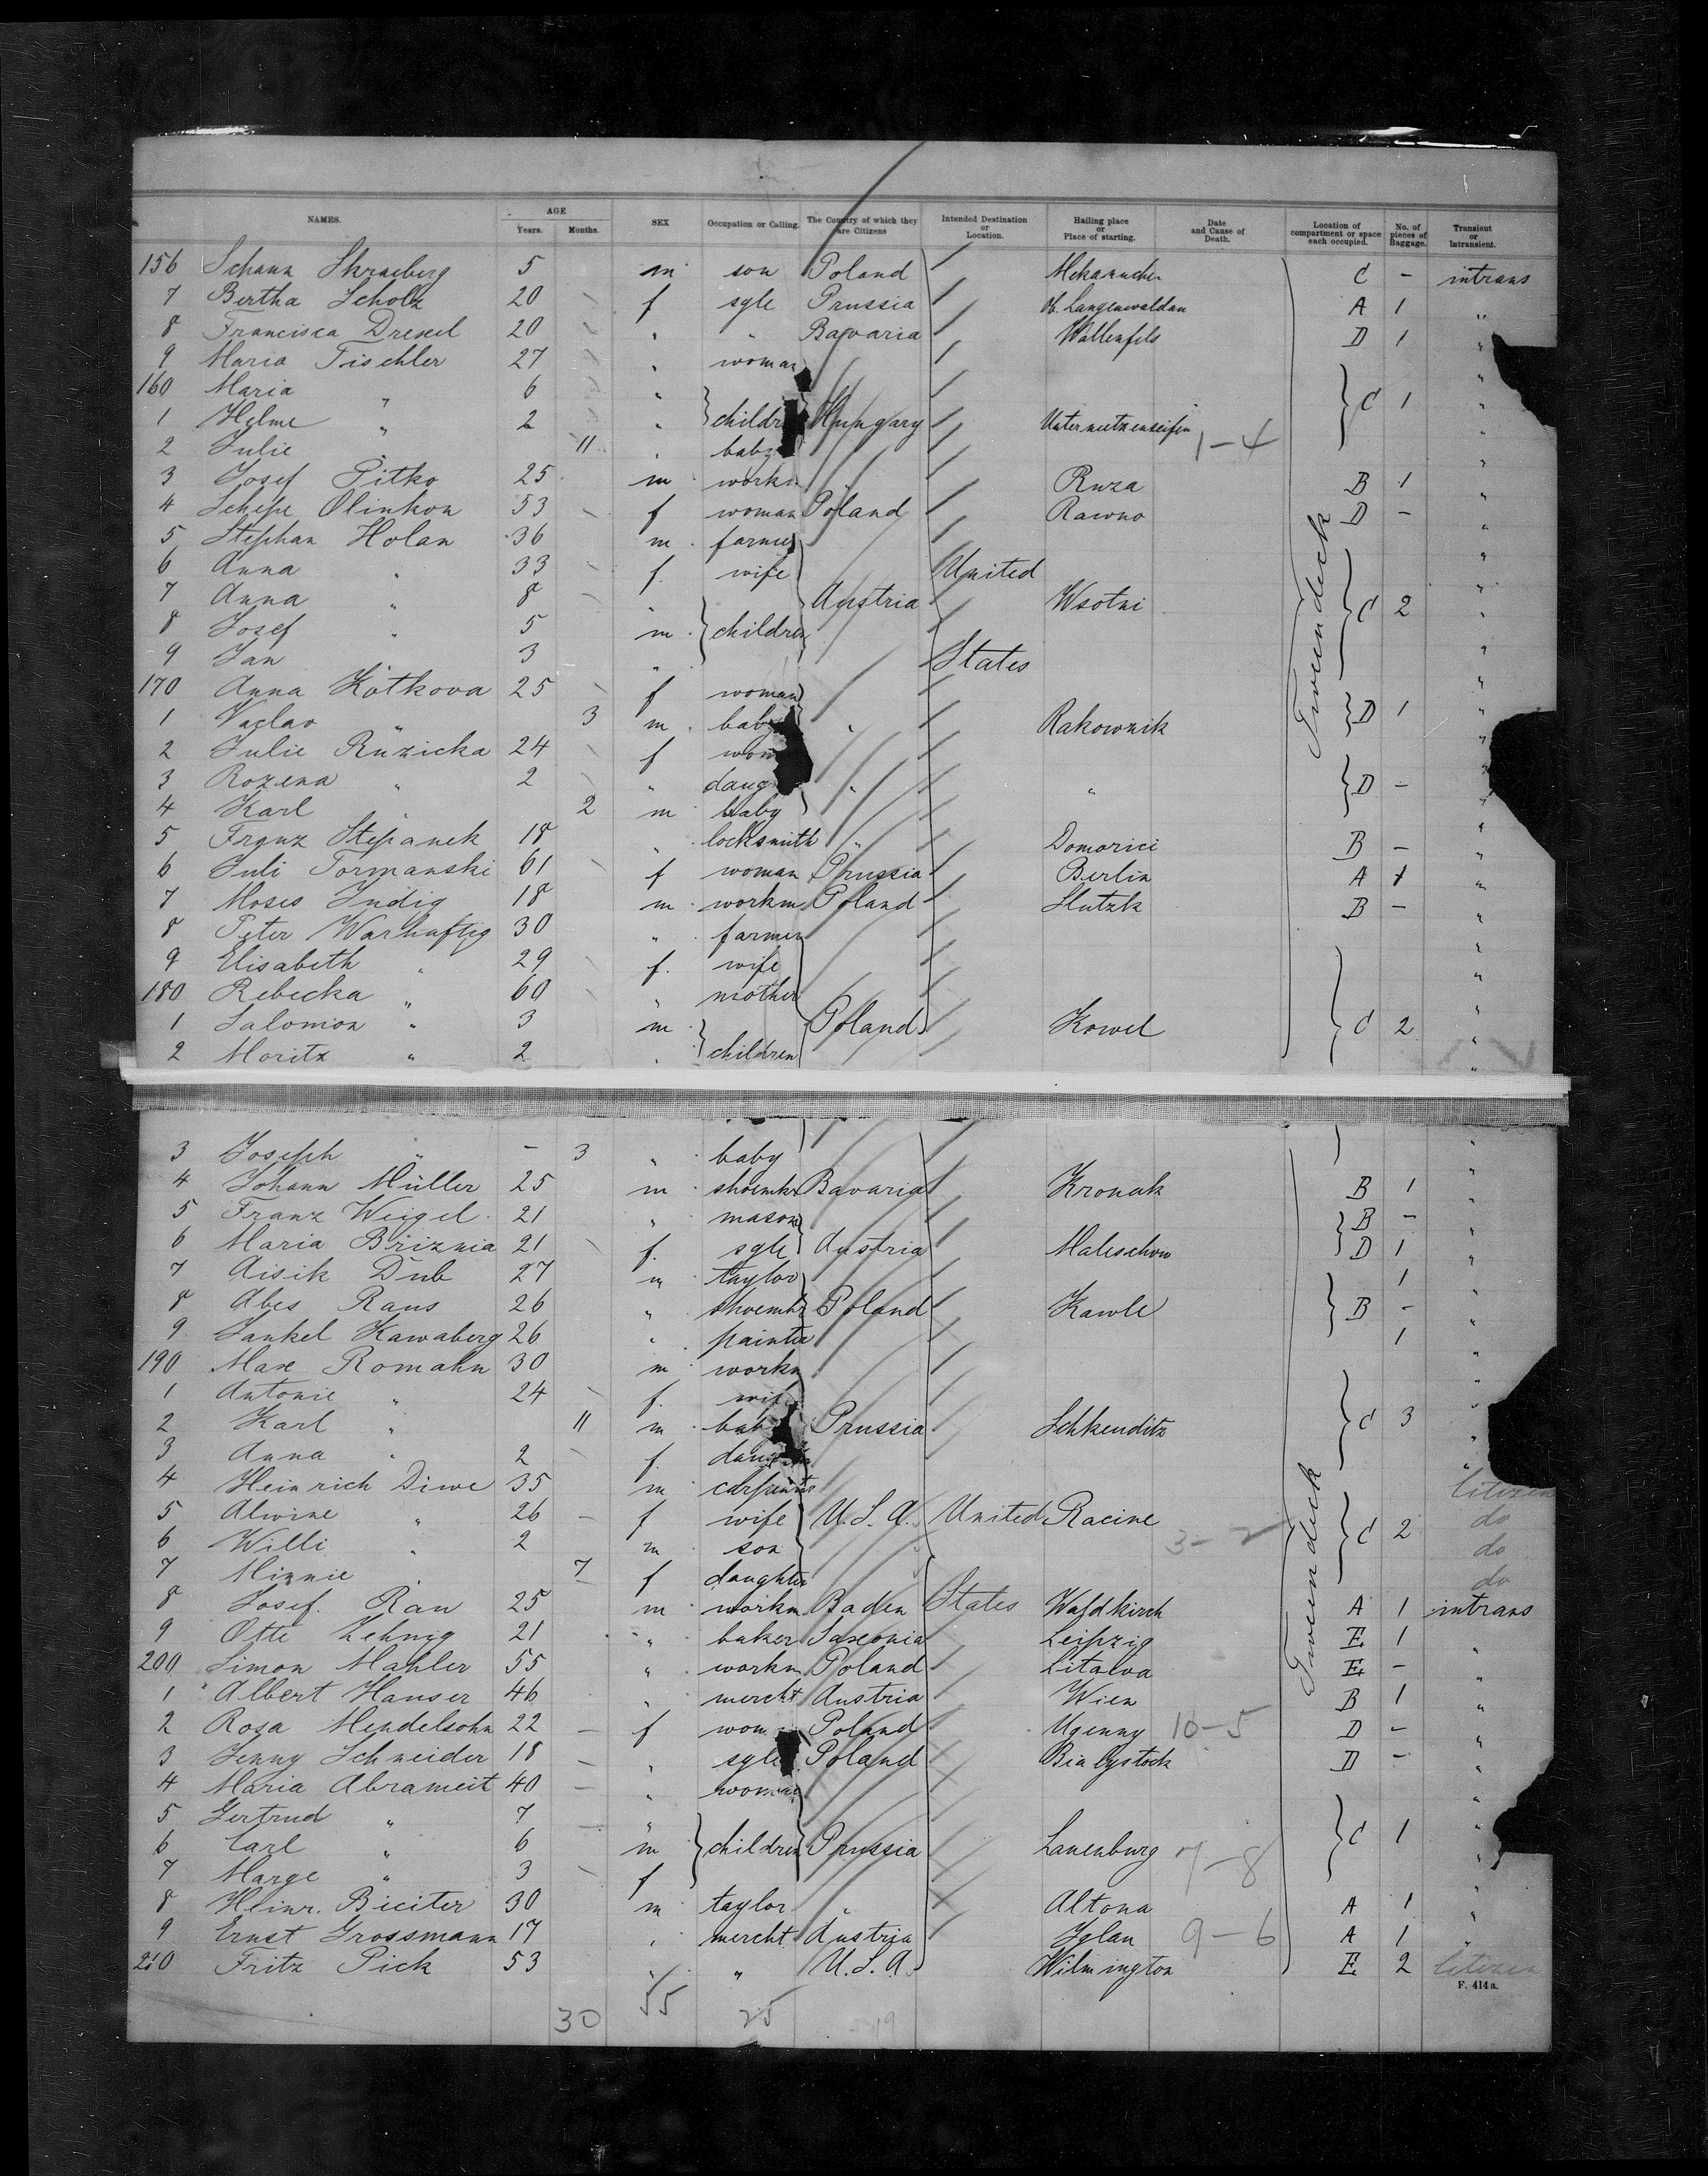 NAMES. AGE Years. Months. SEX Occupation or Calling. The Country of which they are Citizens Intended Destination or Location. Hailing place or Place of starting. Date and Cause of Death. Location of compartment or space each occupied. No. of pieces of Baggage. Transient or Intransient.
156 Schann 5 m son Poland C - intrans
7 Bertha Scholz 20 f sgle Prussia Langenwaldau A 1 "
8 Francisca Drexel 20 " " Bavaria Wallenfels D 1 "
9 Maria Fischler 27 " woman "
160 Maria " 6 " "
1 Helme " 2 " children Hungary Untermetzenseifen C 1 "
2 Julie 11 " baby 1-4
3 Josef Pitko 25 m workm " Ruza B 1 "
4 Schepe Olinkon 53 f woman Poland Rawno D - "
5 Stephan Holan 36 m farmer "
6 Anna " 33 f. wife United "
7 Anna " 8 " Austria Wsotni C 2 "
8 Josef " 5 m children "
9 Jan 3 " States "
170 Anna Kotkova 25 f woman "
1 Vaclav " 3 m baby " Rakownik D 1 "
2 Julie Ruzicka 24 f wom "
3 Rozena " 2 " daug " " D - "
4 Karl " 2 m baby "
5 Franz Stepanek 18 " locksmith " Domorici B - "
6 Juli Tormanski 61 f woman Prussia Berlin A 1 "
7 Moses Indig 18 m workm Poland Slutzk B - "
8 Peter Warhaftig 30 " farmer "
9 Elisabeth " 29 f. wife "
180 Rebecka " 60 " mother "
1 Salomon " 3 m Poland Kowel C 2 "
2 Moritz " 2 " children "
3 Joseph " - 3 " baby "
4 Johann Müller 25 m shoemkr Bavaria Kronak B 1 "
5 Franz Weigel 21 " mason B - "
6 Maria Briznia 21 f. sgle Austria Maleschow D 1 "
7 Aisik Dub 27 m taylor 1 "
8 Abes Raus 26 " shoemkr Poland Kawle B - "
9 Jankel Kawaberg 26 " painter 1 "
190 Max Romahn 30 m workm "
1 Antonie " 24 f. wif "
2 Karl " 11 m bab Prussia Schkeuditz C 3 "
3 Anna " 2 f. daughter "
4 Heinrich Diwe 35 m carpenter citizen
5 Alwine " 26 f wife U.S.A. United Racine C 2 do
6 Willi " 2 m son 3-2 do
7 Minnie " 7 f daughter do
8 Josef Rau 25 m workm Baden States Waldkirch A 1 intrans
9 Otte Zehnig 21 " baker Saxonia Leipzig E 1 "
200 Simon Mahler 55 " workm Poland Litalva E - "
1 Albert Hauser 46 " mercht Austria Wien B 1 "
2 Rosa Mendelsohn 22 f wom Poland Ugenny 10-5 D - "
3 Jenny Schneider 18 " sgle Poland Bialystock D - "
4 Maria Abrameit 40 " woman "
5 Gertrud " 7 " "
6 Carl " 6 m children Prussia Lauenburg 7-8 C 1 "
7 Marge " 3 f "
8 Heinr. Biciter 30 m taylor " Altona A 1 "
9 Ernst Grossmann 17 " mercht Austria Iglau 9-6 A 1 "
210 Fritz Pick 53 " " U.S.A. Wilmington E 2 citizen
Tweendeck
Tweendeck
F. 414a.
30 55 25 19